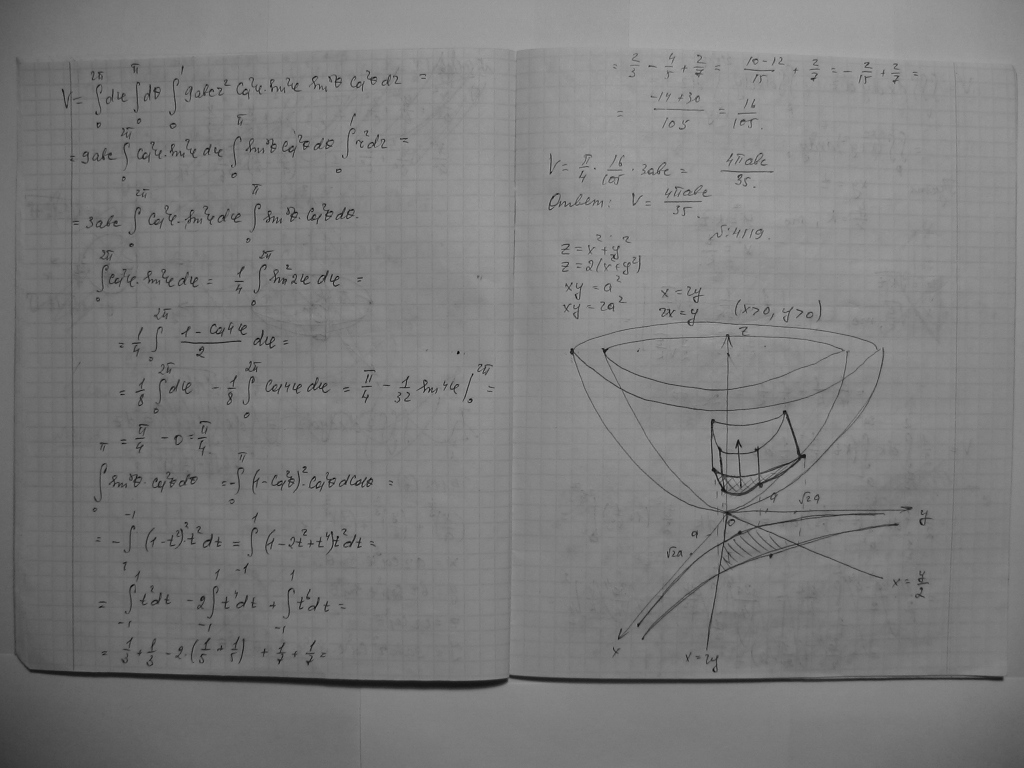 V = ∫₀^{2π} dφ ∫₀^{π} dθ ∫₀^{1} 9abc r² cos²φ sin²φ sin⁵θ cos²θ dr =
= 9abc ∫₀^{2π} cos²φ·sin²φ dφ ∫₀^{π} sin⁵θ cos²θ dθ ∫₀^{1} r² dr =
= 3abc ∫₀^{2π} cos²φ·sin²φ dφ ∫₀^{π} sin⁵θ·cos²θ dθ.
∫₀^{2π} cos²φ·sin²φ dφ = 1/4 ∫₀^{2π} sin²2φ dφ =
= 1/4 ∫₀^{2π} (1 - cos4φ)/2 dφ =
= 1/8 ∫₀^{2π} dφ - 1/8 ∫₀^{2π} cos4φ dφ = π/4 - 1/32 sin4φ |₀^{2π} =
= π/4 - 0 = π/4.
∫₀^{π} sin⁵θ·cos²θ dθ = -∫₀^{π} (1-cos²θ)²·cos²θ dcosθ =
= -∫₁^{-1} (1-t²)² t² dt = ∫₋₁^{1} (1-2t²+t⁴) t² dt =
= ∫₋₁^{1} t² dt - 2∫₋₁^{1} t⁴ dt + ∫₋₁^{1} t⁶ dt =
= 1/3 + 1/3 - 2·(1/5 + 1/5) + 1/7 + 1/7 =
= 2/3 - 4/5 + 2/7 = (10-12)/15 + 2/7 = -2/15 + 2/7 =
= (-14+30)/105 = 16/105.
V = π/4 · 16/105 · 3abc = 4πabc/35.
Ответ: V = 4πabc/35.
№4119.
z = x² + y²
z = 2(x²+y²)
xy = a² x = 2y
xy = 2a² 2x = y (x>0, y>0)
z
a
√2a
0
y
a
√2a
x = y/2
x
x = 2y